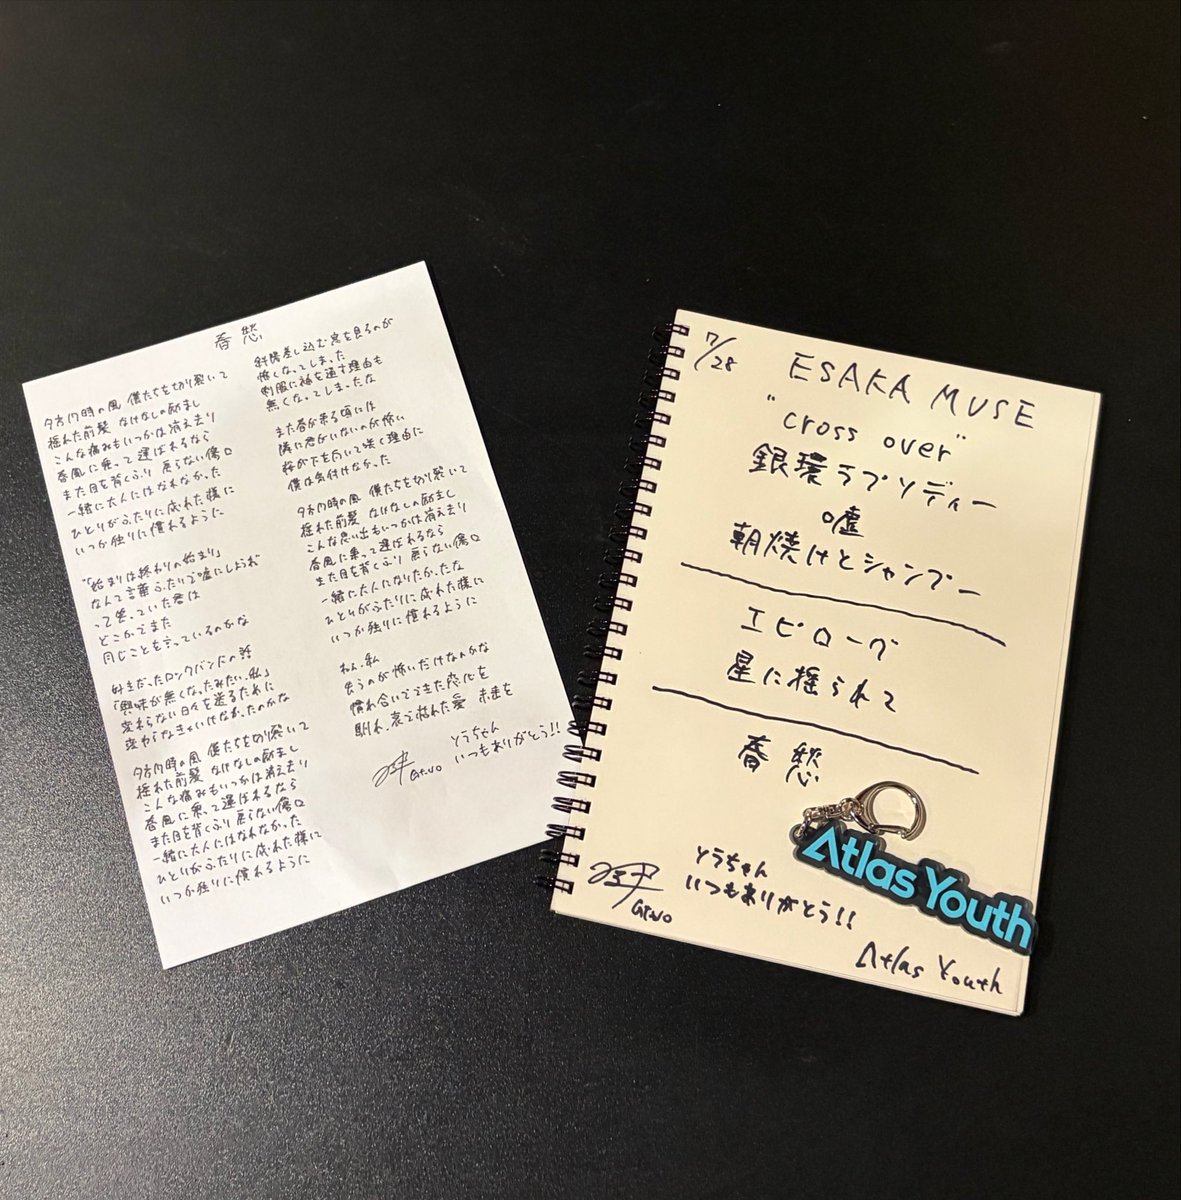 春愁
夕方17時の風 僕たちを切り裂いて
揺れた前髪 なけなしの励まし
こんな痛みもいつかは消え去り
春風に乗って運ばれるなら
また目を背くふり 戻らない傷口
一緒に大人にはなれなかった
ひとりがふたりに成れた様に
いつか独りに慣れるように
"「始まりは終わりの始まり」
なんて言葉ふたりで嘘にしようぜ"
って笑っていた君は
どこかでまた
同じことを言っているのかな
好きだったロックバンドの話
「興味が無くなったみたい、私」
変わらない日々を送るために
変わらなきゃいけなかったのかな
夕方17時の風 僕たちを切り裂いて
揺れた前髪 なけなしの励まし
こんな痛みもいつかは消え去り
春風に乗って運ばれるなら
また目を背くふり 戻らない傷口
一緒に大人にはなれなかった
ひとりがふたりに成れた様に
いつか独りに慣れるように
斜陽差し込む窓を見るのが
怖くなってしまった
制服に袖を通す理由も
無くなってしまったな
また春が来る頃には
隣に君がいないのが怖い
桜が下を向いて咲く理由に
僕は気付けなかった
夕方17時の風 僕たちを切り裂いて
揺れた前髪 なけなしの励まし
こんな思い出もいつかは消え去り
春風に乗って運ばれるなら
また目を背くふり 戻らない傷口
一緒に大人になりたかったな
ひとりがふたりに成れた様に
いつか独りに慣れるように
ねえ、私
失うのが怖いだけなのかな
慣れ合いでできた恋心を
馴れ、哀で枯れた愛 未来を
とうちゃん
いつもありがとう!!
Gt.Vo
7/28
ESAKA MUSE
"cross over"
銀環ラプソディー
嘘
朝焼けとシャンプー
エピローグ
星に揺られて
春愁
とうちゃん
いつもありがとう!!
Gt.Vo
Atlas Youth
Atlas Youth